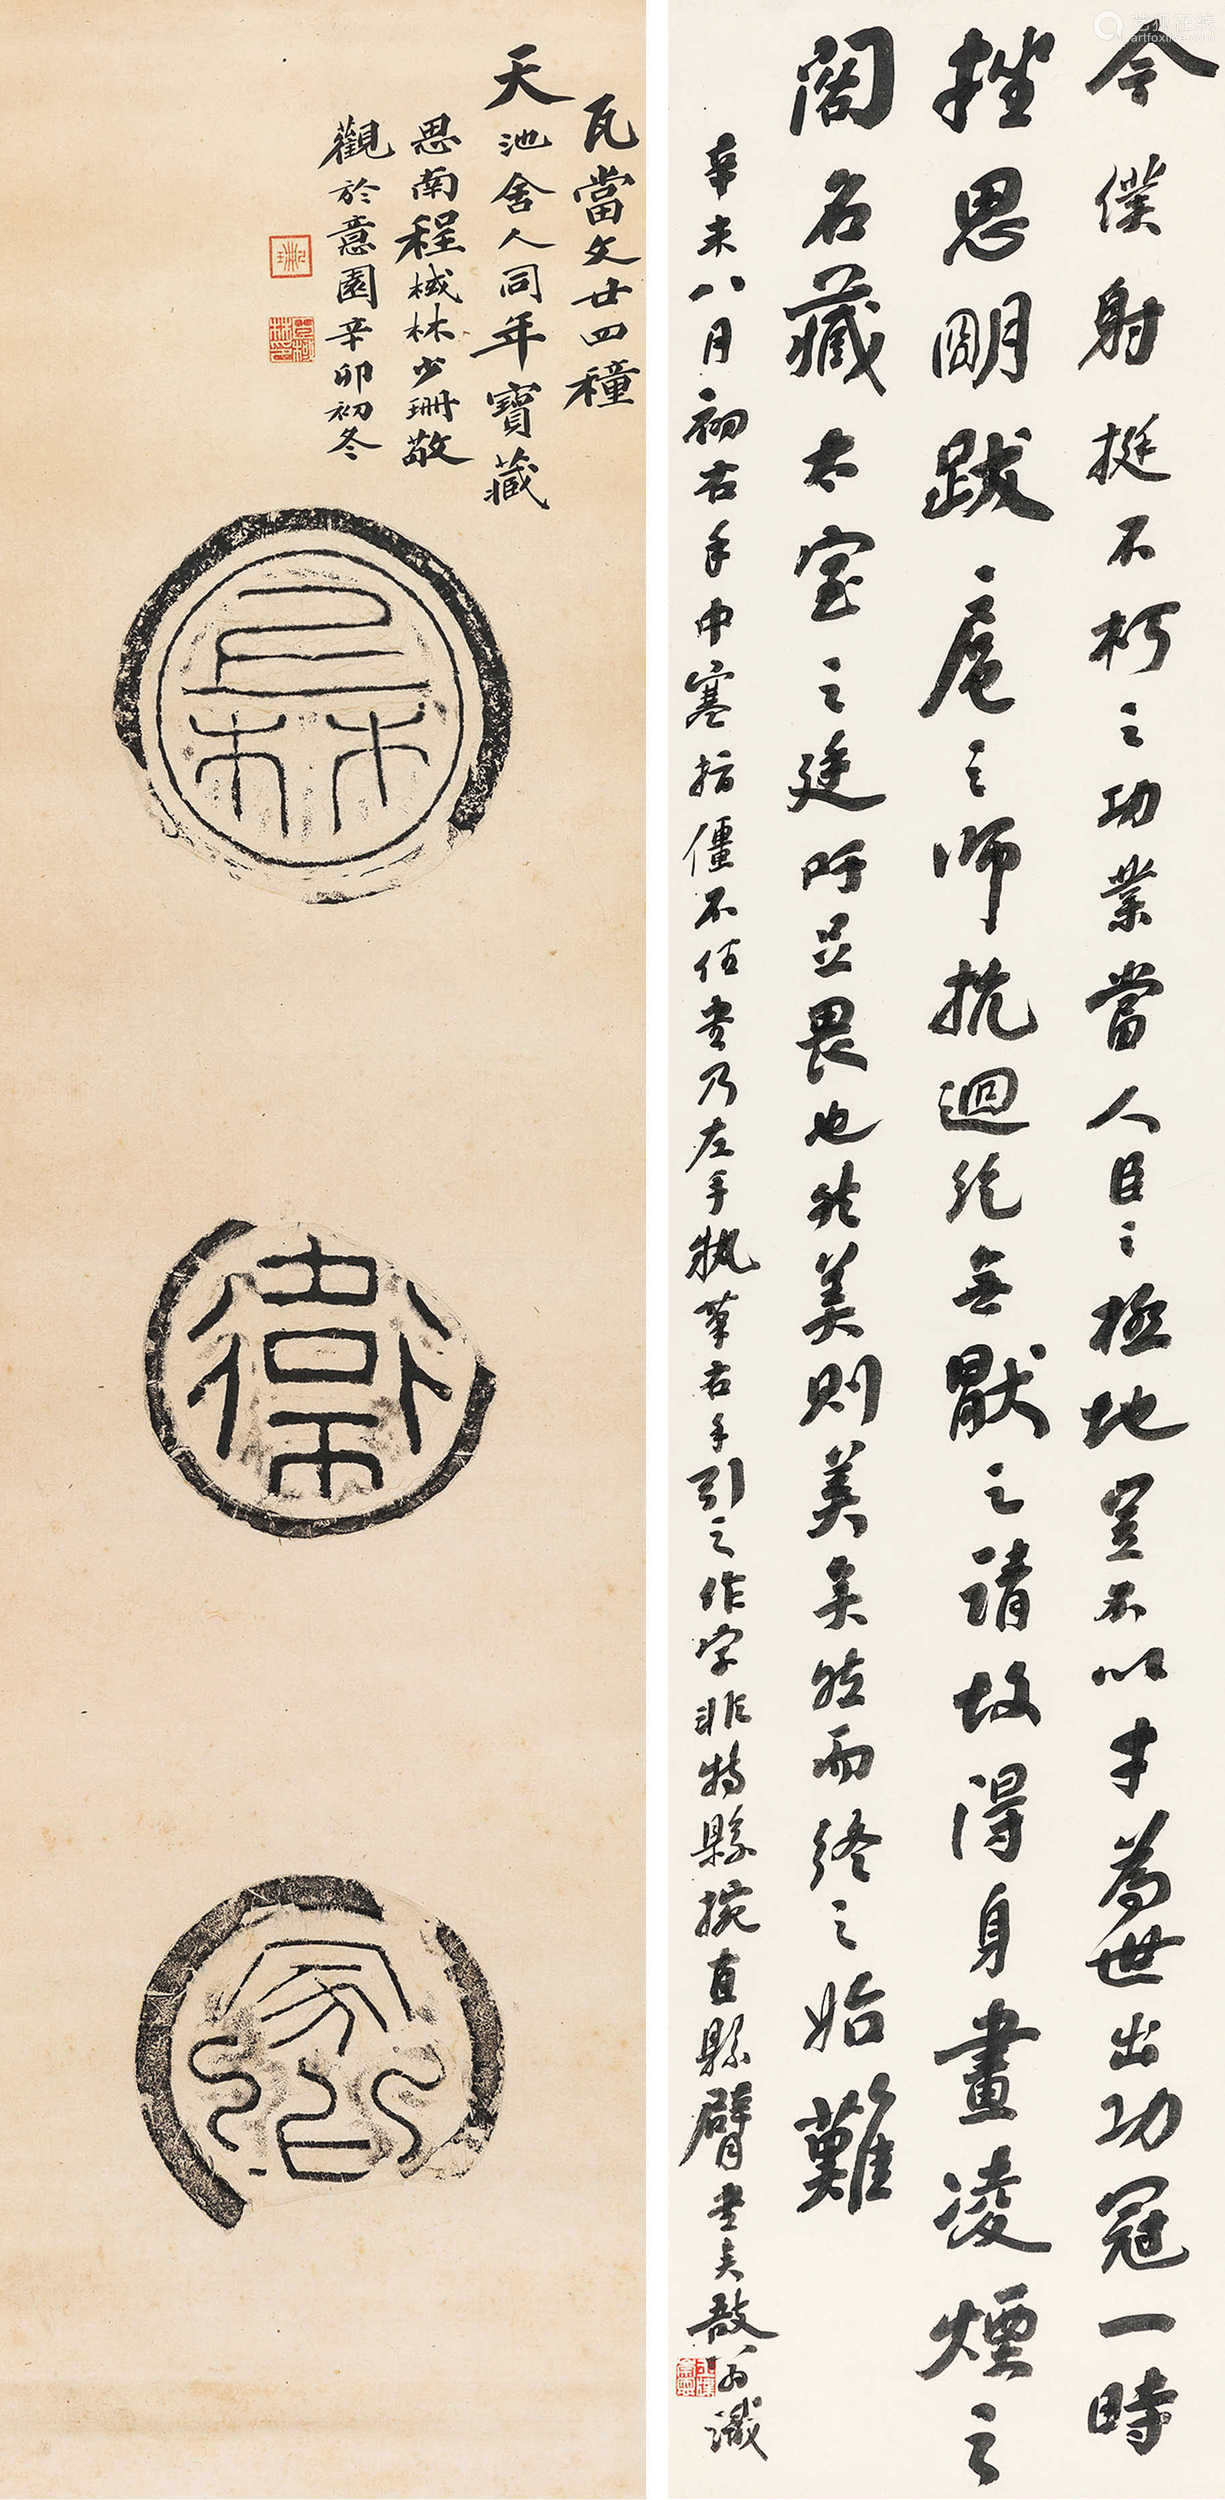 今僕射挺不朽之功業當人臣之極地豈不以才為世出功冠一時
挫思明跋扈之師抗迴紇無厭之請故得身畫凌煙之
閣名藏太室之廷吁足畏也然美則美矣然而終之始難
辛未八月初右手中寒指僵不任書乃左手執筆右手引之作字非特縣捥直縣臂書矣敔翁識
瓦當文廿四種
天池舍人同年寶藏
思南程棫林少珊敬
觀於意園辛卯初冬
衛
artfoxlive.com